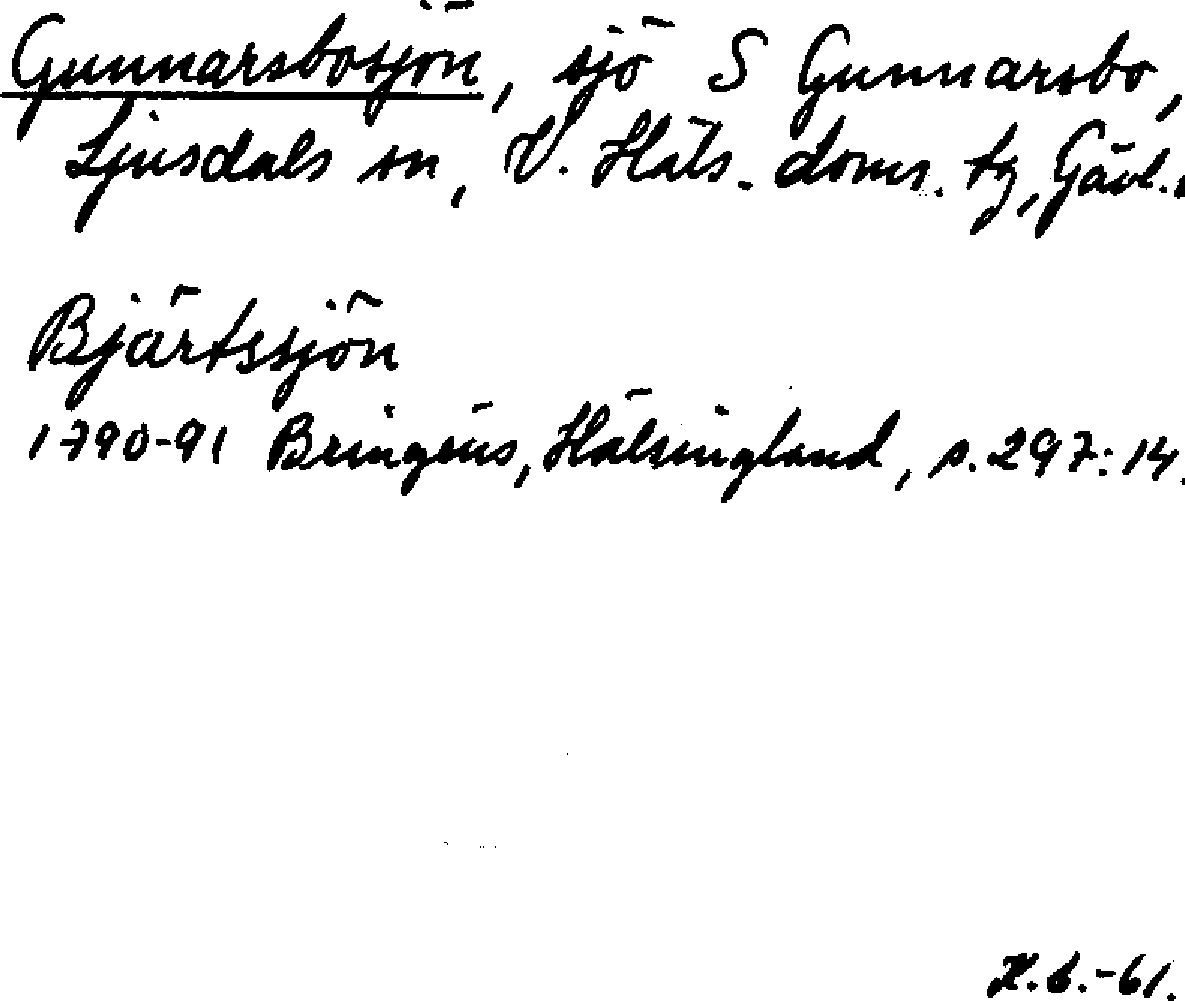 Gunnarsbosjön, sjö S Gunnarsbo,
Ljusdals sn, V. Häls. doms. tg, Gävl.
Bjärtssjön
1790-91 Bringéus, Hälsingland, s. 297: 14.
H.b.-61.